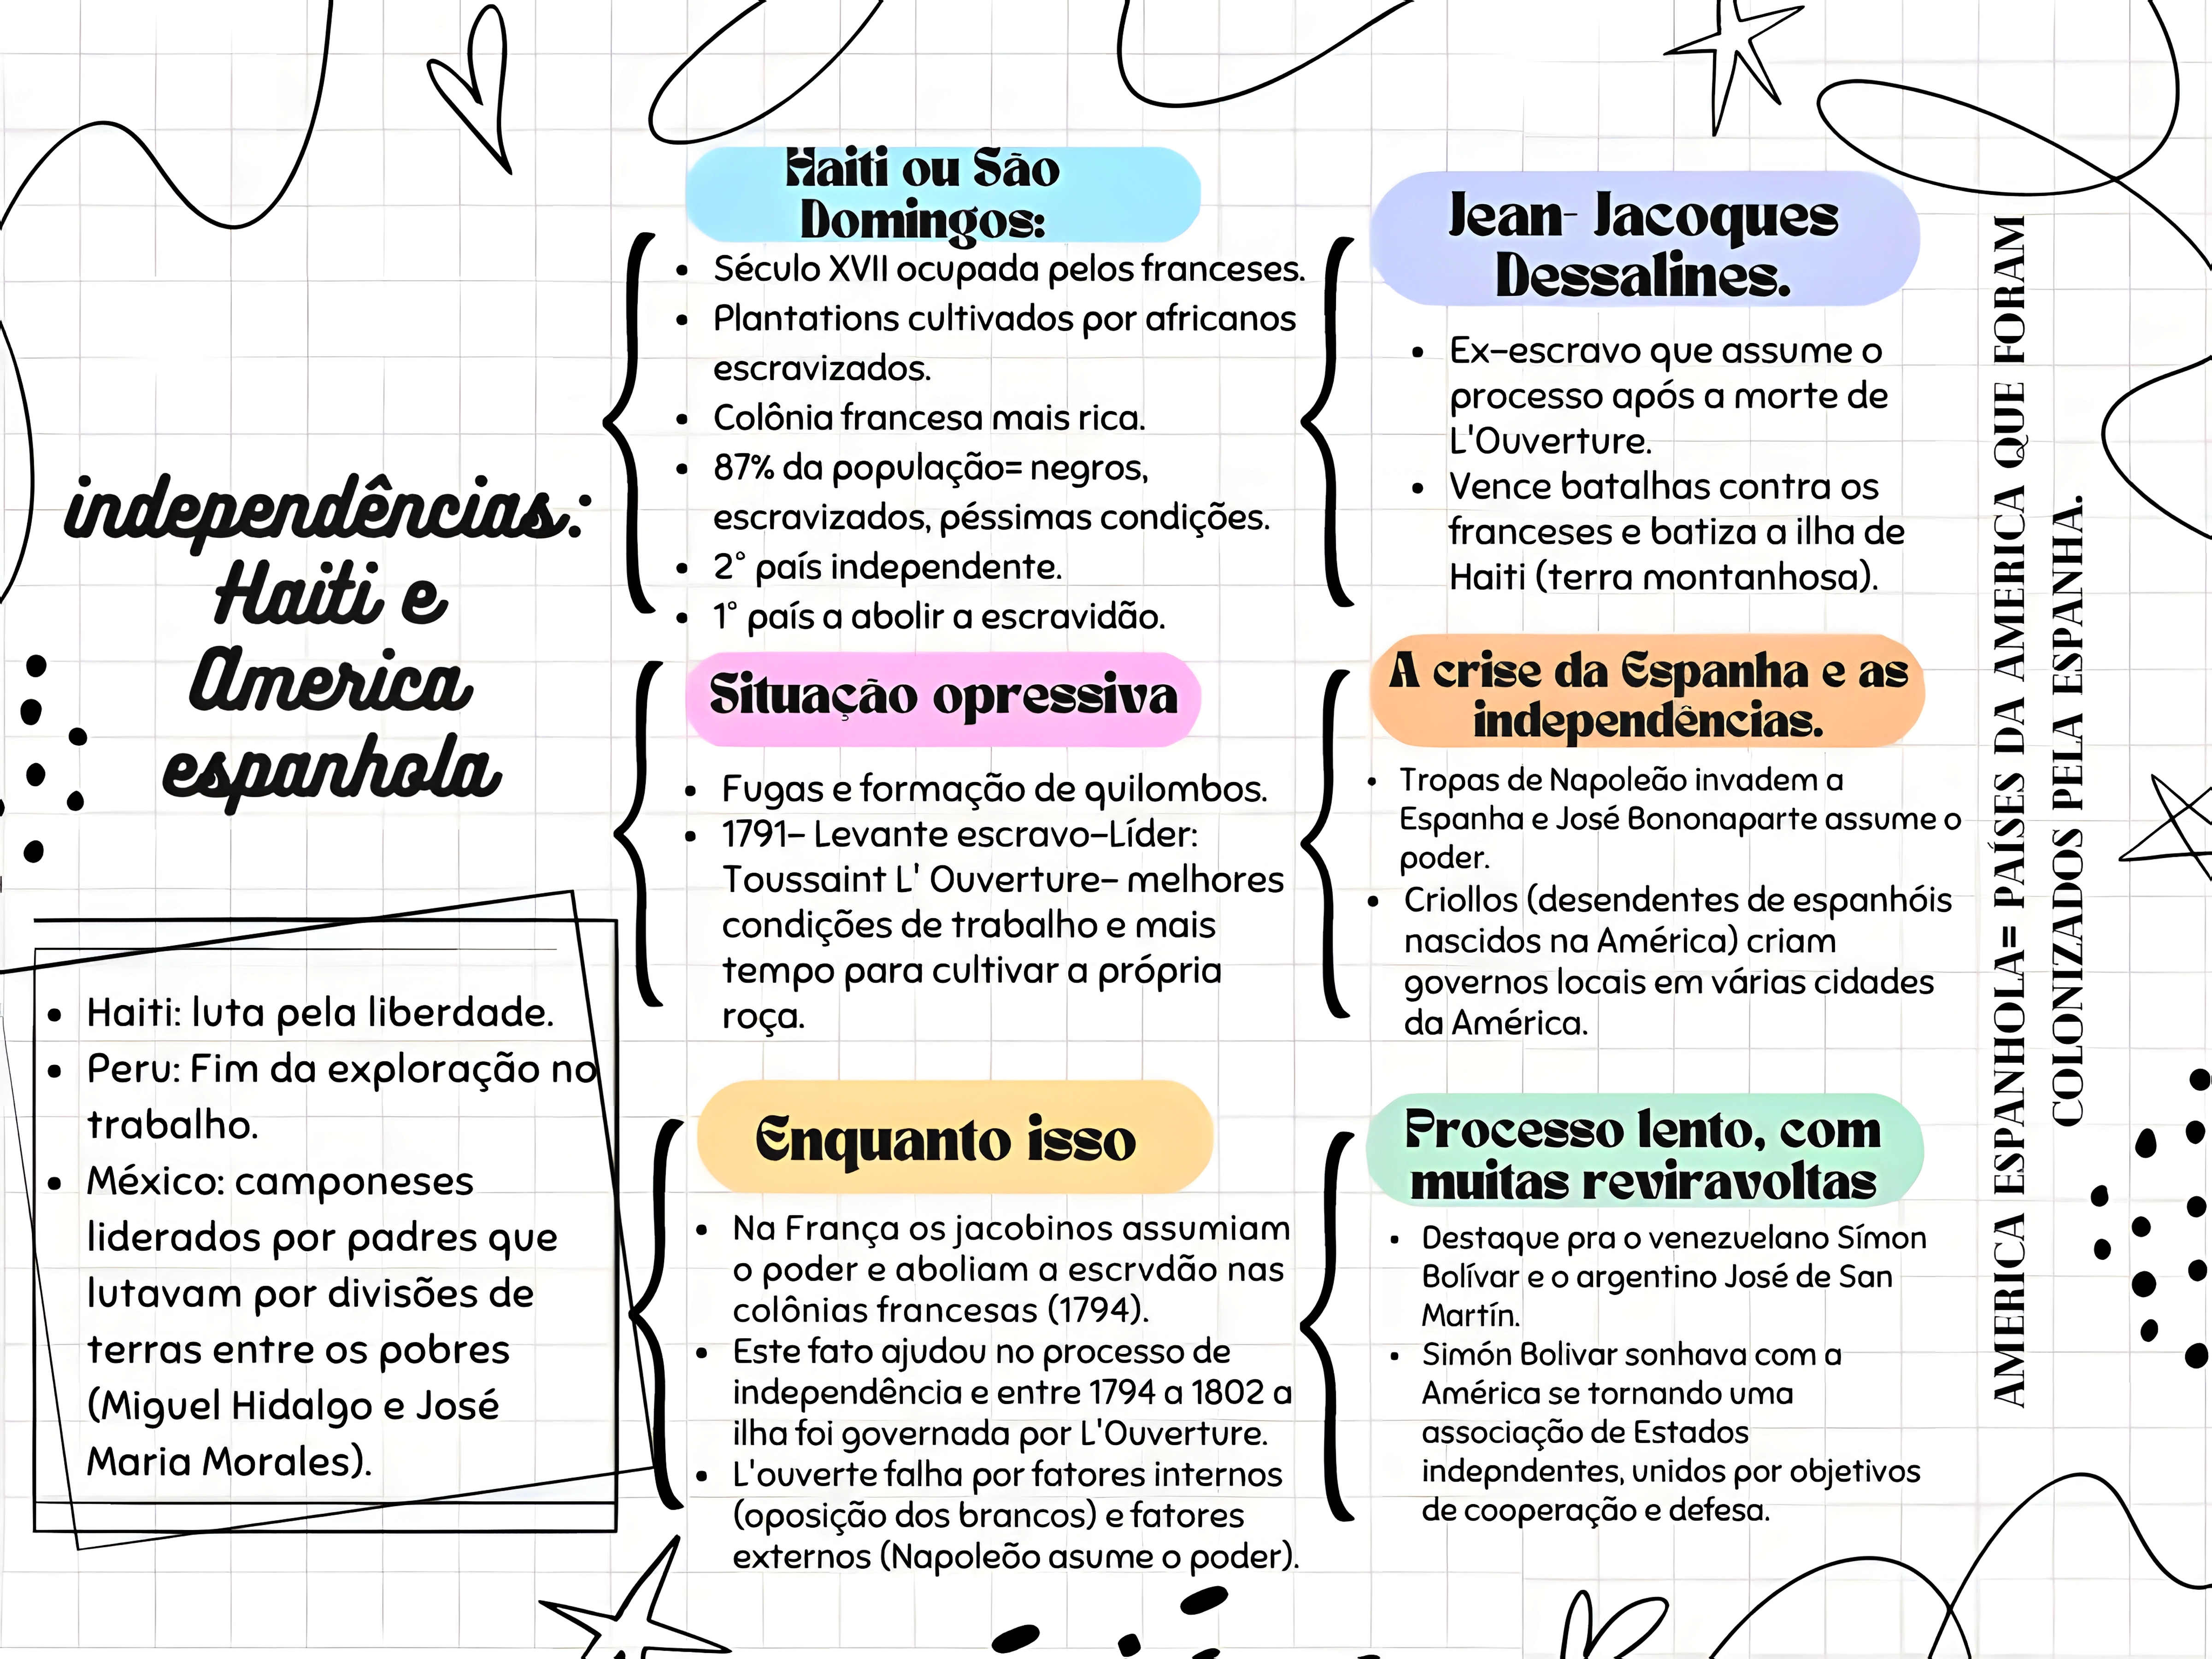 independências:
Haiti e
America
espanhola
• Haiti: luta pela liberdade.
• Peru: Fim da exploração no
trabalho.
• México: camponeses
liderados por padres que
lutavam por divisões de
terras entre os pobres
(Miguel Hidalgo e José
Maria Morales).
Haiti ou São
Domingos:
• Século XVII ocupada pelos franceses.
• Plantations cultivados por africanos
escravizados.
• Colônia francesa mais rica.
• 87% da população= negros,
escravizados, péssimas condições.
• 2° país independente.
• 1° país a abolir a escravidão.
Situação opressiva
• Fugas e formação de quilombos.
• 1791– Levante escravo–Líder:
Toussaint L' Ouverture– melhores
condições de trabalho e mais
tempo para cultivar a própria
roça.
Enquanto isso
• Na França os jacobinos assumiam
o poder e aboliam a escrvdão nas
colônias francesas (1794).
• Este fato ajudou no processo de
independência e entre 1794 a 1802 a
ilha foi governada por L'Ouverture.
• L'ouverte falha por fatores internos
(oposição dos brancos) e fatores
externos (Napoleõo asume o poder).
Jean- Jacoques
Dessalines.
• Ex–escravo que assume o
processo após a morte de
L'Ouverture.
• Vence batalhas contra os
franceses e batiza a ilha de
Haiti (terra montanhosa).
A crise da Espanha e as
independências.
• Tropas de Napoleão invadem a
Espanha e José Bononaparte assume o
poder.
• Criollos (desendentes de espanhóis
nascidos na América) criam
governos locais em várias cidades
da América.
Processo lento, com
muitas reviravoltas
• Destaque pra o venezuelano Símon
Bolívar e o argentino José de San
Martín.
• Simón Bolivar sonhava com a
América se tornando uma
associação de Estados
indepndentes, unidos por objetivos
de cooperação e defesa.
AMERICA ESPANHOLA= PAÍSES DA AMERICA QUE FORAM
COLONIZADOS PELA ESPANHA.